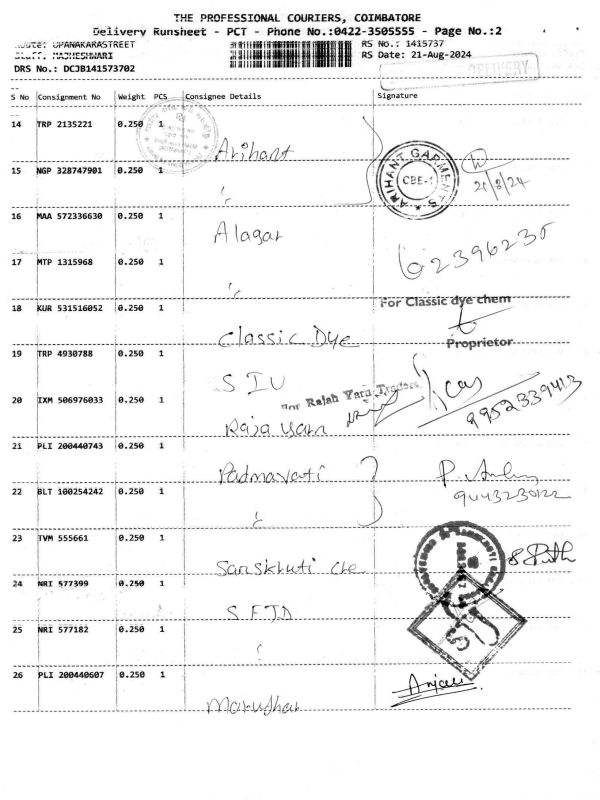 THE PROFESSIONAL COURIERS, COIMBATORE
Delivery Runsheet - PCT - Phone No.:0422-3505555 - Page No.:2
Route: OPANAKARASTREET
RS No.: 1415737
Staff: MAJHESHWARI
RS Date: 21-Aug-2024
DRS No.: DCJB141573702
DELIVERY
S No Consignment No Weight PCS Consignee Details Signature
14 TRP 2135221 0.250 1
Arihant
ARIHANT GARMENTS
CBE-1
21/8/24
15 NGP 328747901 0.250 1
〃
16 MAA 572336630 0.250 1
Alagar
17 MTP 1315968 0.250 1
〃
18 KUR 531516052 0.250 1
For Classic dye chem
Classic Dye
Proprietor
19 TRP 4930788 0.250 1
SIV
For Rajah Yarn Traders
9952339413
20 IXM 506976033 0.250 1
Raja yarn
21 PLI 200440743 0.250 1
Padmavati
22 BLT 100254242 0.250 1
〃
23 TVM 555661 0.250 1
24 NRI 577399 0.250 1
25 NRI 577182 0.250 1
26 PLI 200440607 0.250 1
Anjali
Marudhar